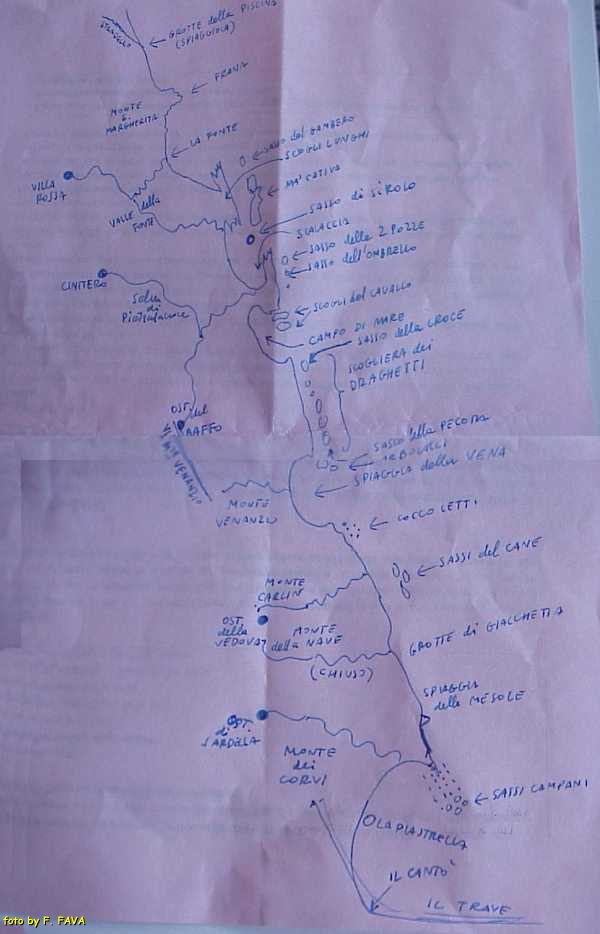 STRADELLO
GROTTE della PISCINA
(SPIAGGIOLA)
FRANA
MONTE
S.
MARGHERITA
LA FONTE
SASSO del GAMBERO
SCOGLI LUNGHI
VILLA
ROSSA
MA' CATIVA
SASSO di SIROLO
VALLE della
FONTE
SCALACCIA
SASSO delle 2 POZZE
SASSO dell'OMBRELLO
CINITERO
SCOGLI del CAVALLO
di
CAMPO DI MARE
SASSO della CROCE
SCOGLIERA dei
DRAGHETTI
OST. del
BAFFO
SASSO della PECORA
SPIAGGIA della VENA
VENANZIO
MONTE
VENANZIO
COCCOLETTI
SASSI del CANE
MONTE
CARLIN
OST.
della
VEDOVA
MONTE
della NAVE
GROTTE di GIACCHETTA
(CHIUSO)
SPIAGGIA
delle MESOLE
OST.
di
SARDELLA
MONTE
dei
CORVI
SASSI CAMPANI
LA PIASTRELLA
IL CANTO'
IL TRAVE
foto by F. FAVA